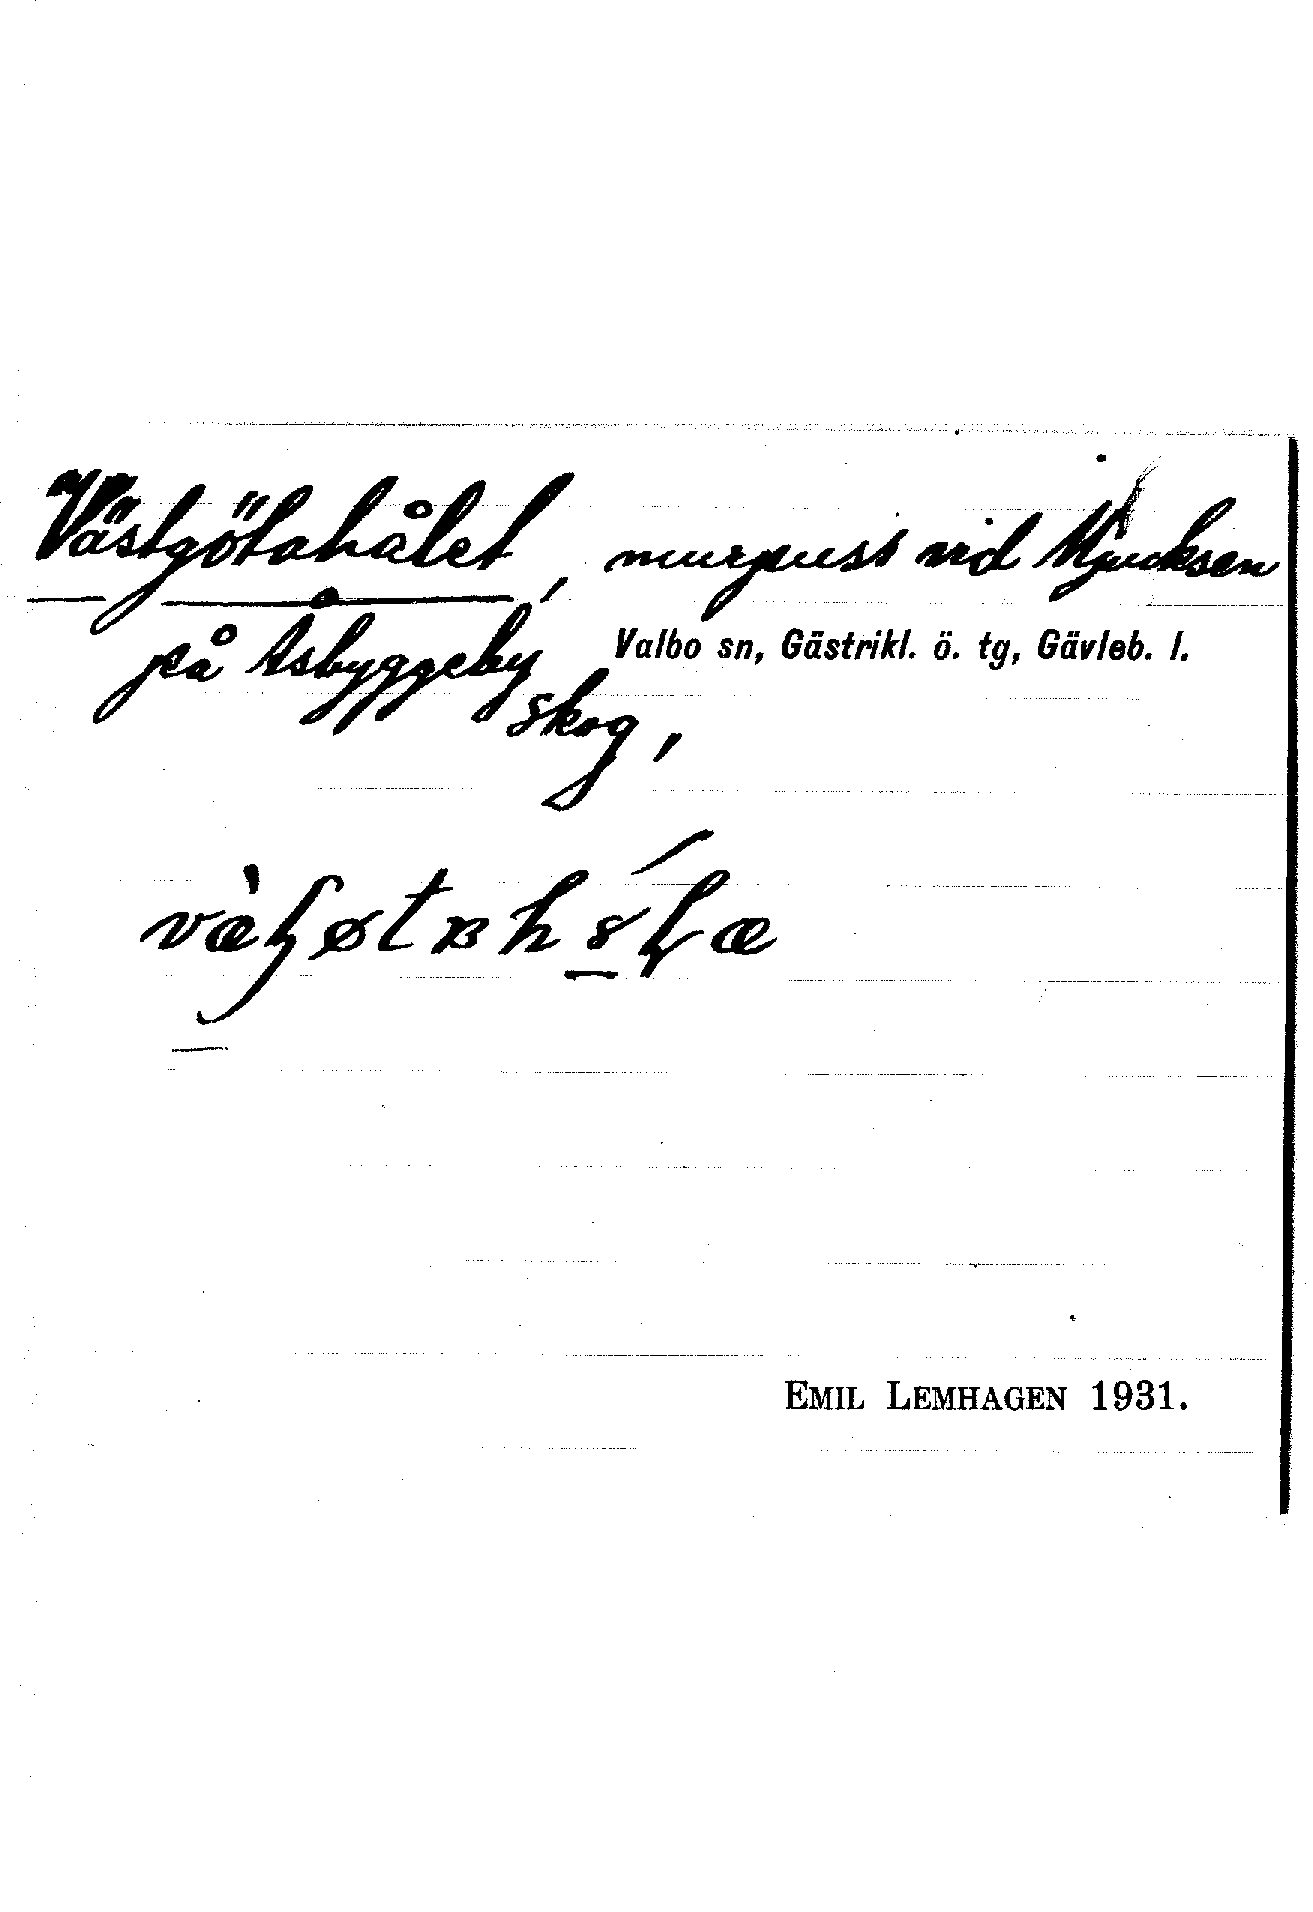 Västgötahålet, murpuss vid Mjucksen
på Åsbyggeby Valbo sn, Gästrikl. ö. tg, Gävleb. l.
skog,
EMIL LEMHAGEN 1931.